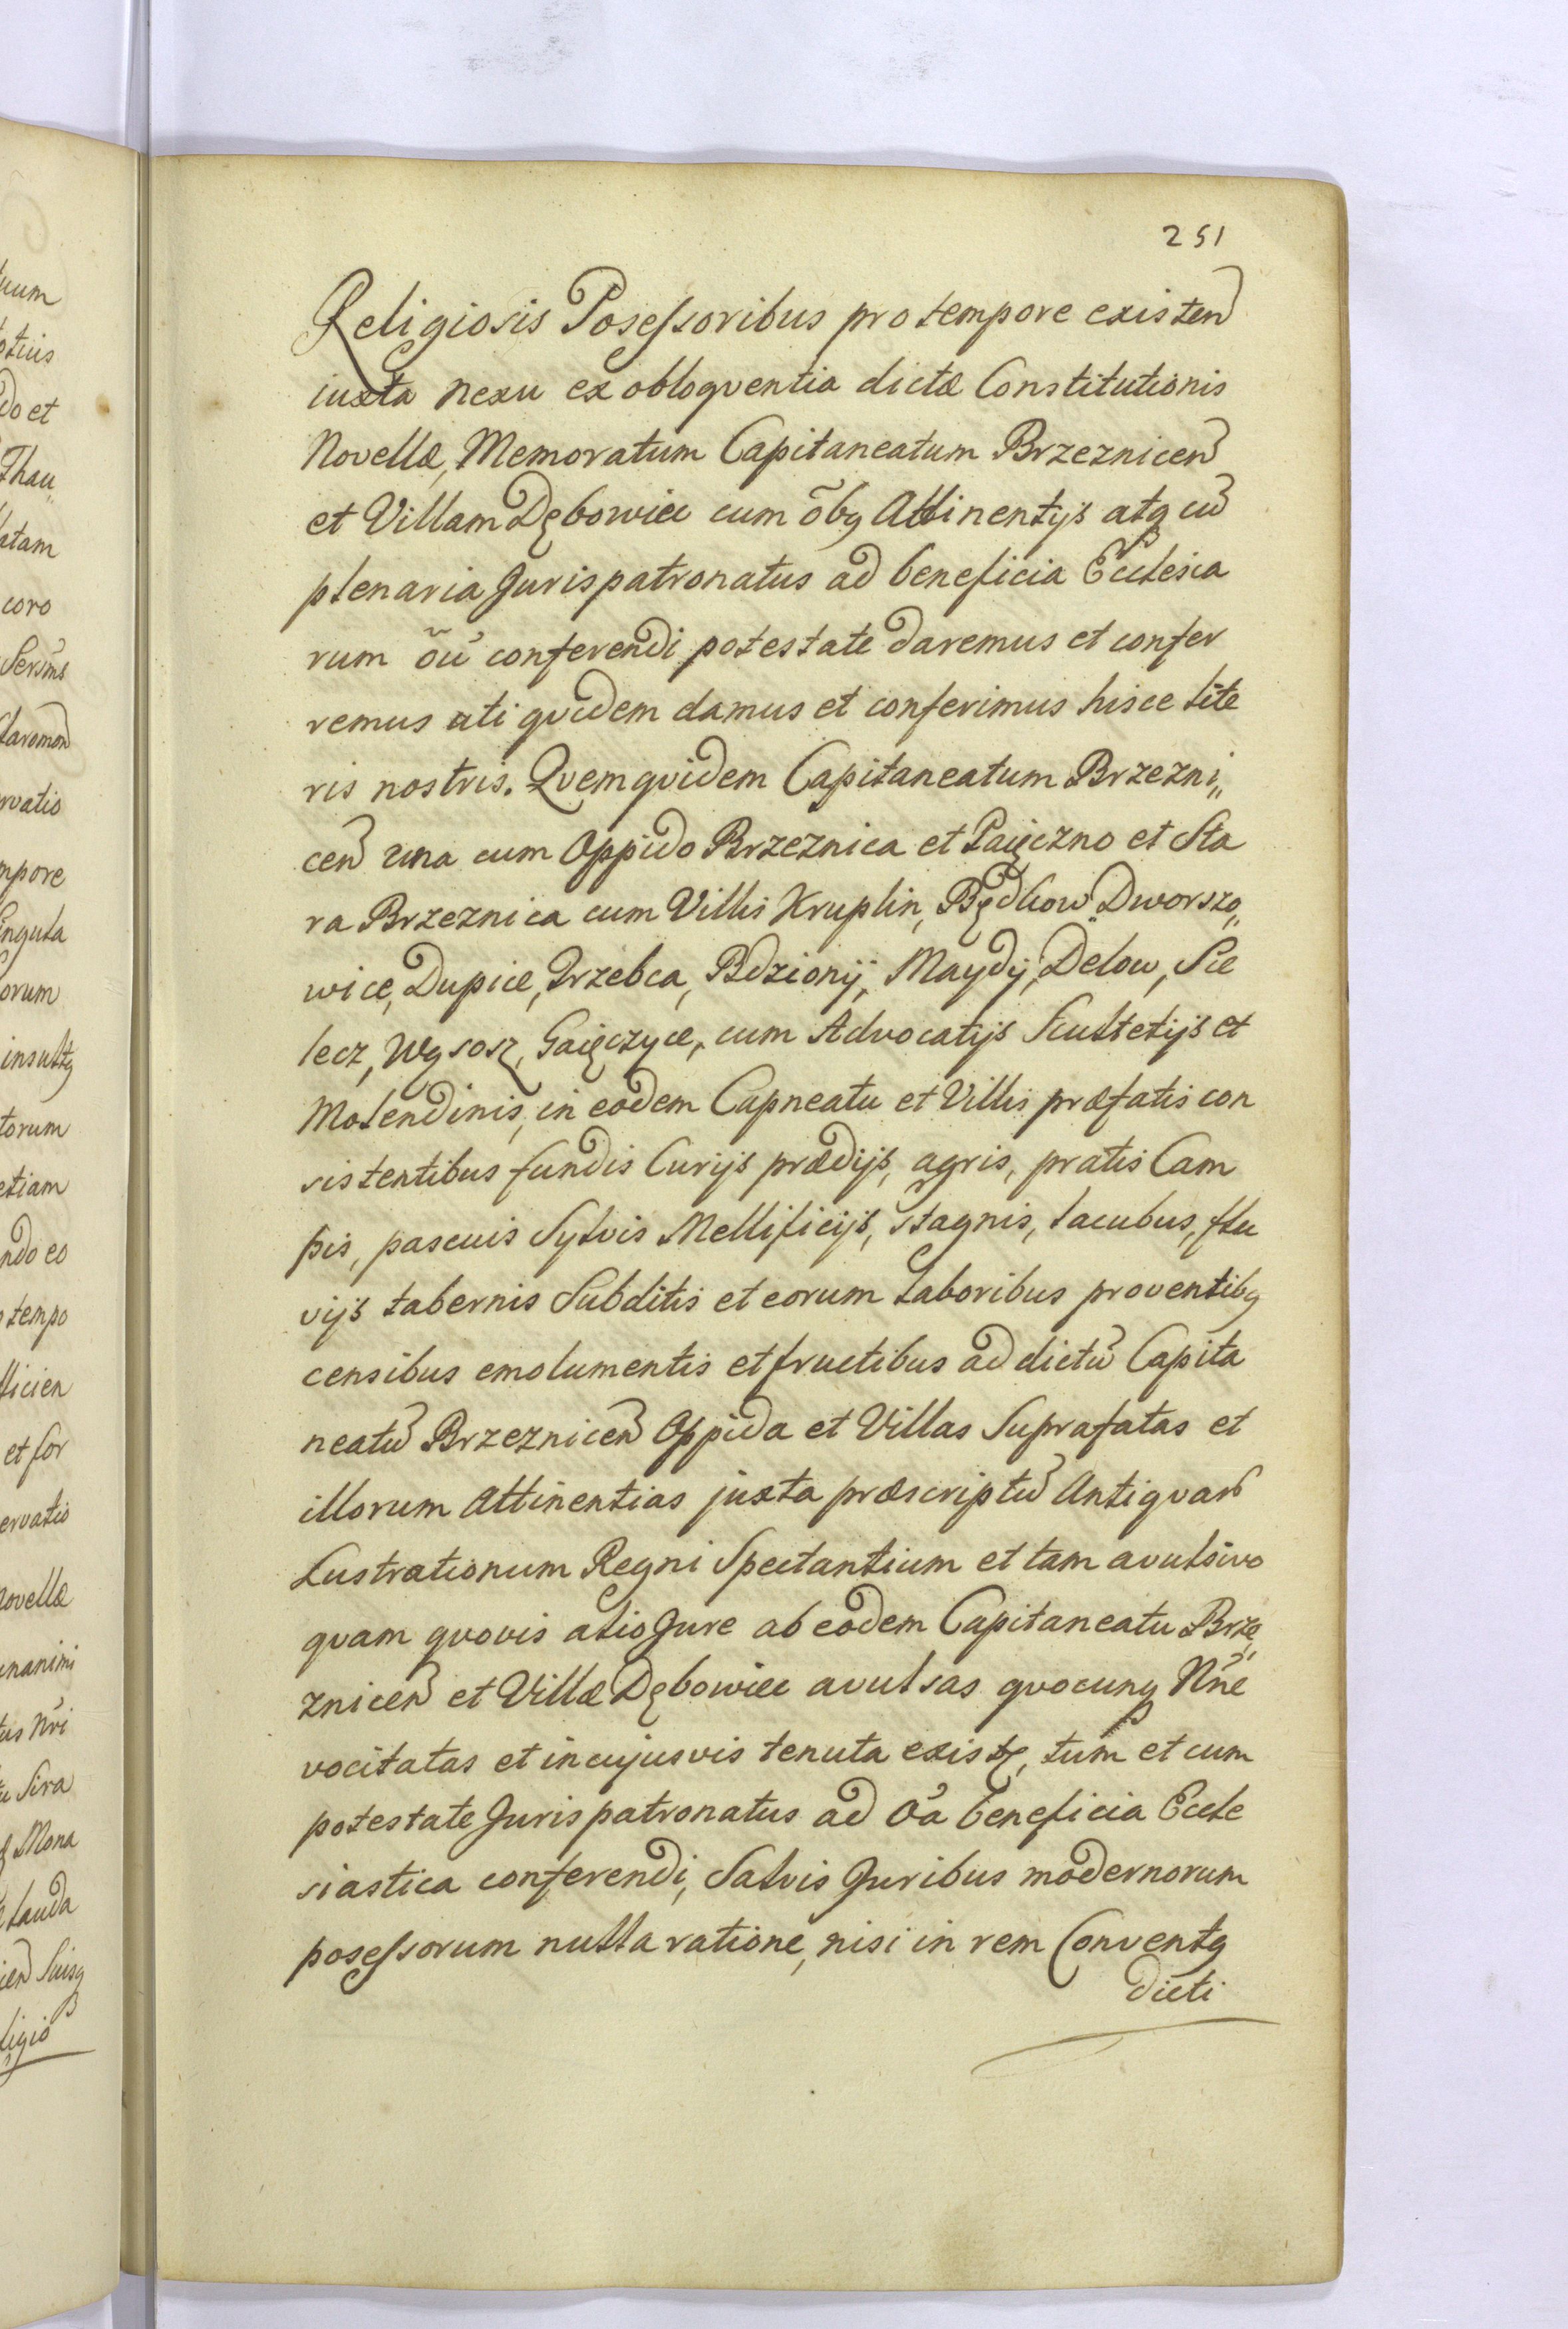 251
Religiosis Posessoribus pro tempore existen̄
iuxta nexu ex obloqventia dictæ Constitutionis
Novellæ, Memoratum Capitaneatum Brzeznicen̄
et Villam Dębowiec cum õbq Attinentijs atq cū
plenaria Jurispatronatus ad beneficia Ecclesia
rum õũ conferendi potestate daremus et confer
remus uti qvidem damus et conferimus hisce lite
ris nostris. Qvemqvidem Capitaneatum Brzezni„
cen̄ una cum Oppido Brzeznica et Paięczno et Sta
ra Brzeznica cum Villis Kruplin, Będkow Dworszo„
wice, Dupice, Trzebca, Bdzionÿ, Maydÿ, Delow, Sie
lecz, Wąsosz, Gaięczyce, cum Advocatijs Scultetijs et
Molendinis, in eodem Capneatu et Villis præfatis con
sistentibus fundis Curijs prædijs, agris, pratis Cam
pis, pascuis Sylvis Mellificijs, stagnis, lacubus, flu
vijs tabernis Subditis et eorum laboribus proventibq
censibus emolumentis et fructibus ad dictū Capita
neatū Brzeznicen̄ Oppida et Villas Suprafatas et
illorum Attinentias juxta præscriptū Antiqvar̄
Lustrationum Regni Spectantium et tam avulsivo
qvam qvovis alio Jure ab eodem Capitaneatu Brze„
znicen̄ et Villæ Dębowiec avulsas qvocunq Nn̄e
vocitatas et in cujusvis tenuta exist, tum et cum
potestate Jurispatronatus ad o͂a beneficia Eccle
siastica conferendi, Salvis Juribus modernorum
posessorum nulla ratione, nisi in rem Conventq
dicti